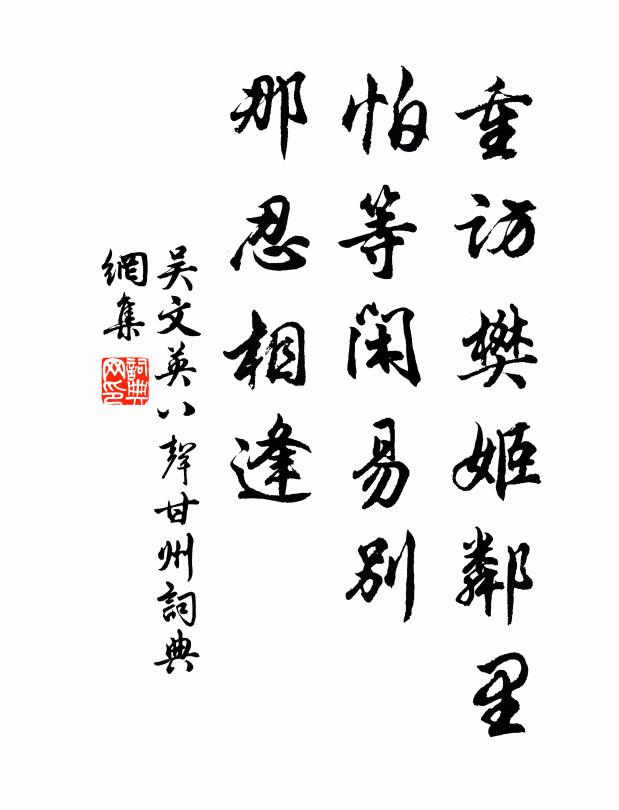 重访樊姬鄰里
怕等闲易别
那忍相逢
吴文英八聲甘州詞典
網集
詞典網印